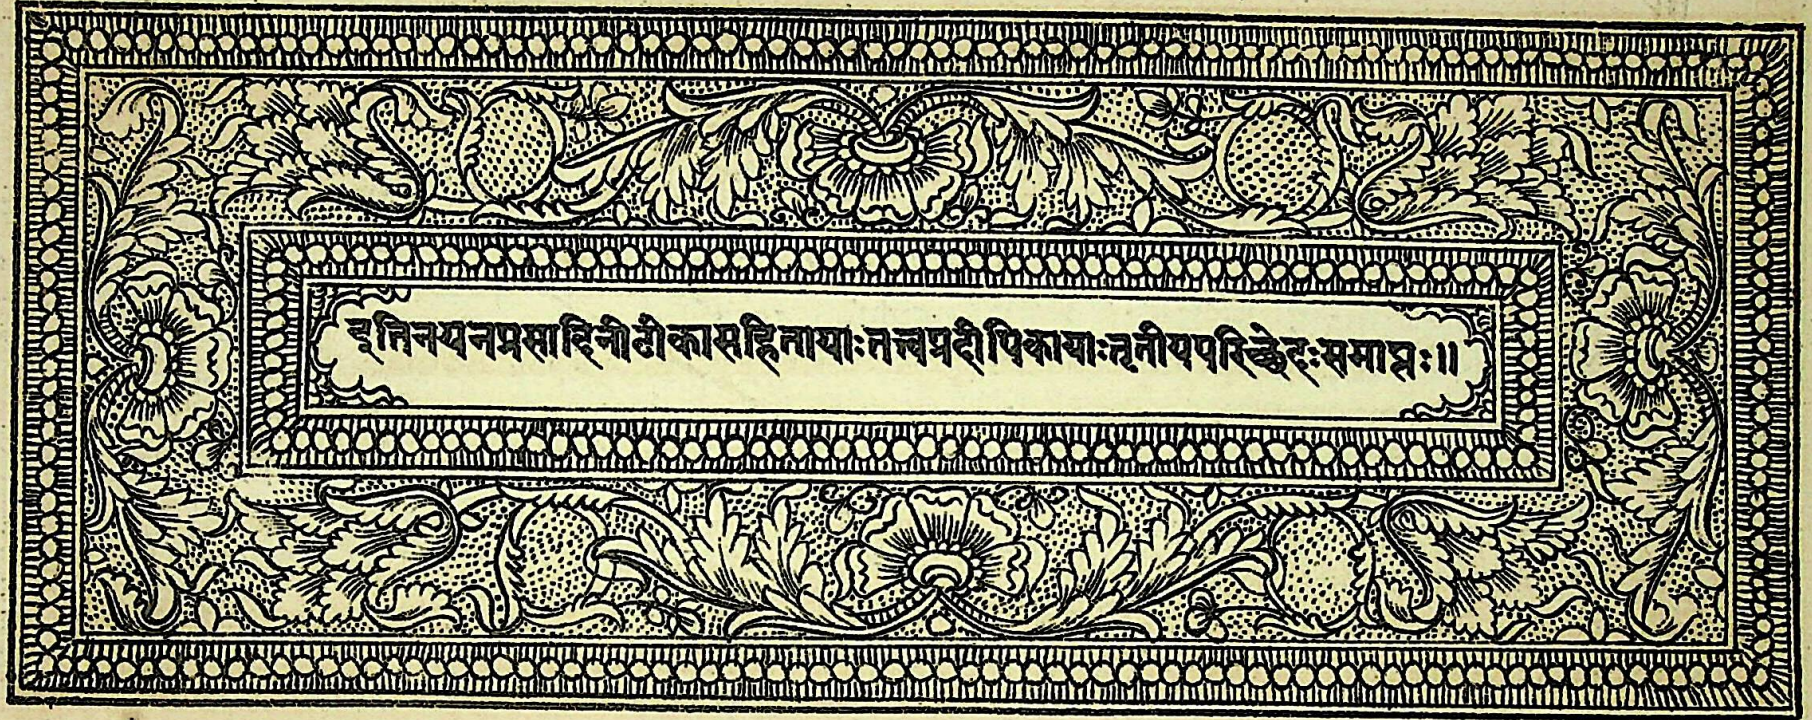 इतिनयनप्रसादिनीटीकासहितायाःतत्त्वप्रदीपिकायाःतृतीयपरिच्छेदःसमाप्तः॥